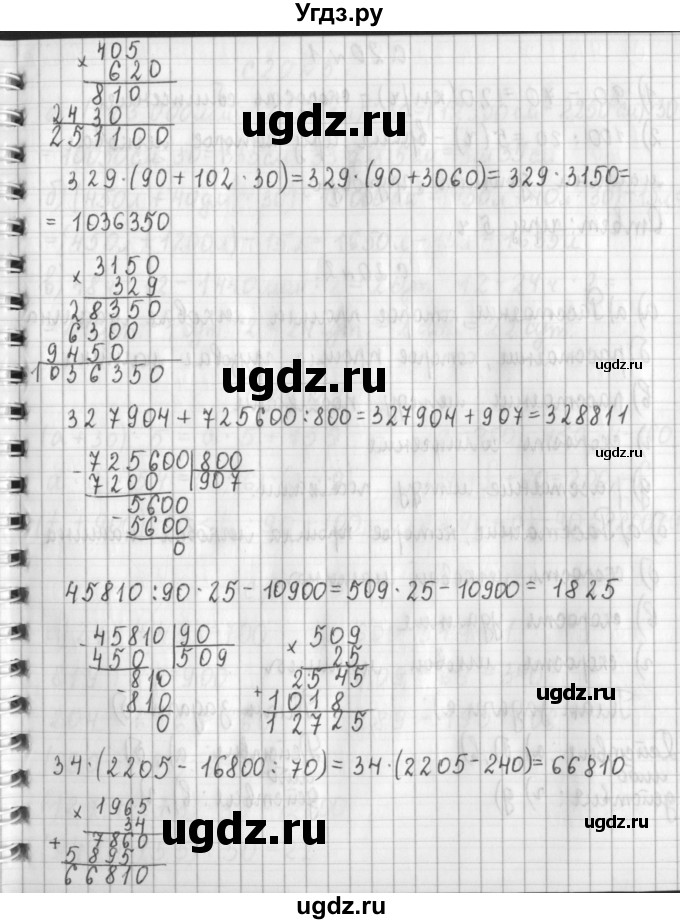 Угдз.ру
405
× 620
810
2430
251100
ugdz.ru
329·(90+102·30)=329·(90+3060)=329·3150=
= 1036350
× 3150
329
28350
6300
9450
1036350
ugdz.ru
ugdz.ru
327904+725600:800=327904+907=328811
- 725600 800
7200 907
- 5600
5600
0
ugdz.ru
45810:90·25-10900=509·25-10900=1825
- 45810 90
450 509
- 810
810
0
× 509
25
+ 2545
1018
12725
ugdz.ru
34·(2205-16800:70)=34·(2205-240)=66810
× 1965
34
+ 7860
5895
66810
ugdz.ru
ugdz.ru
ugdz.ru